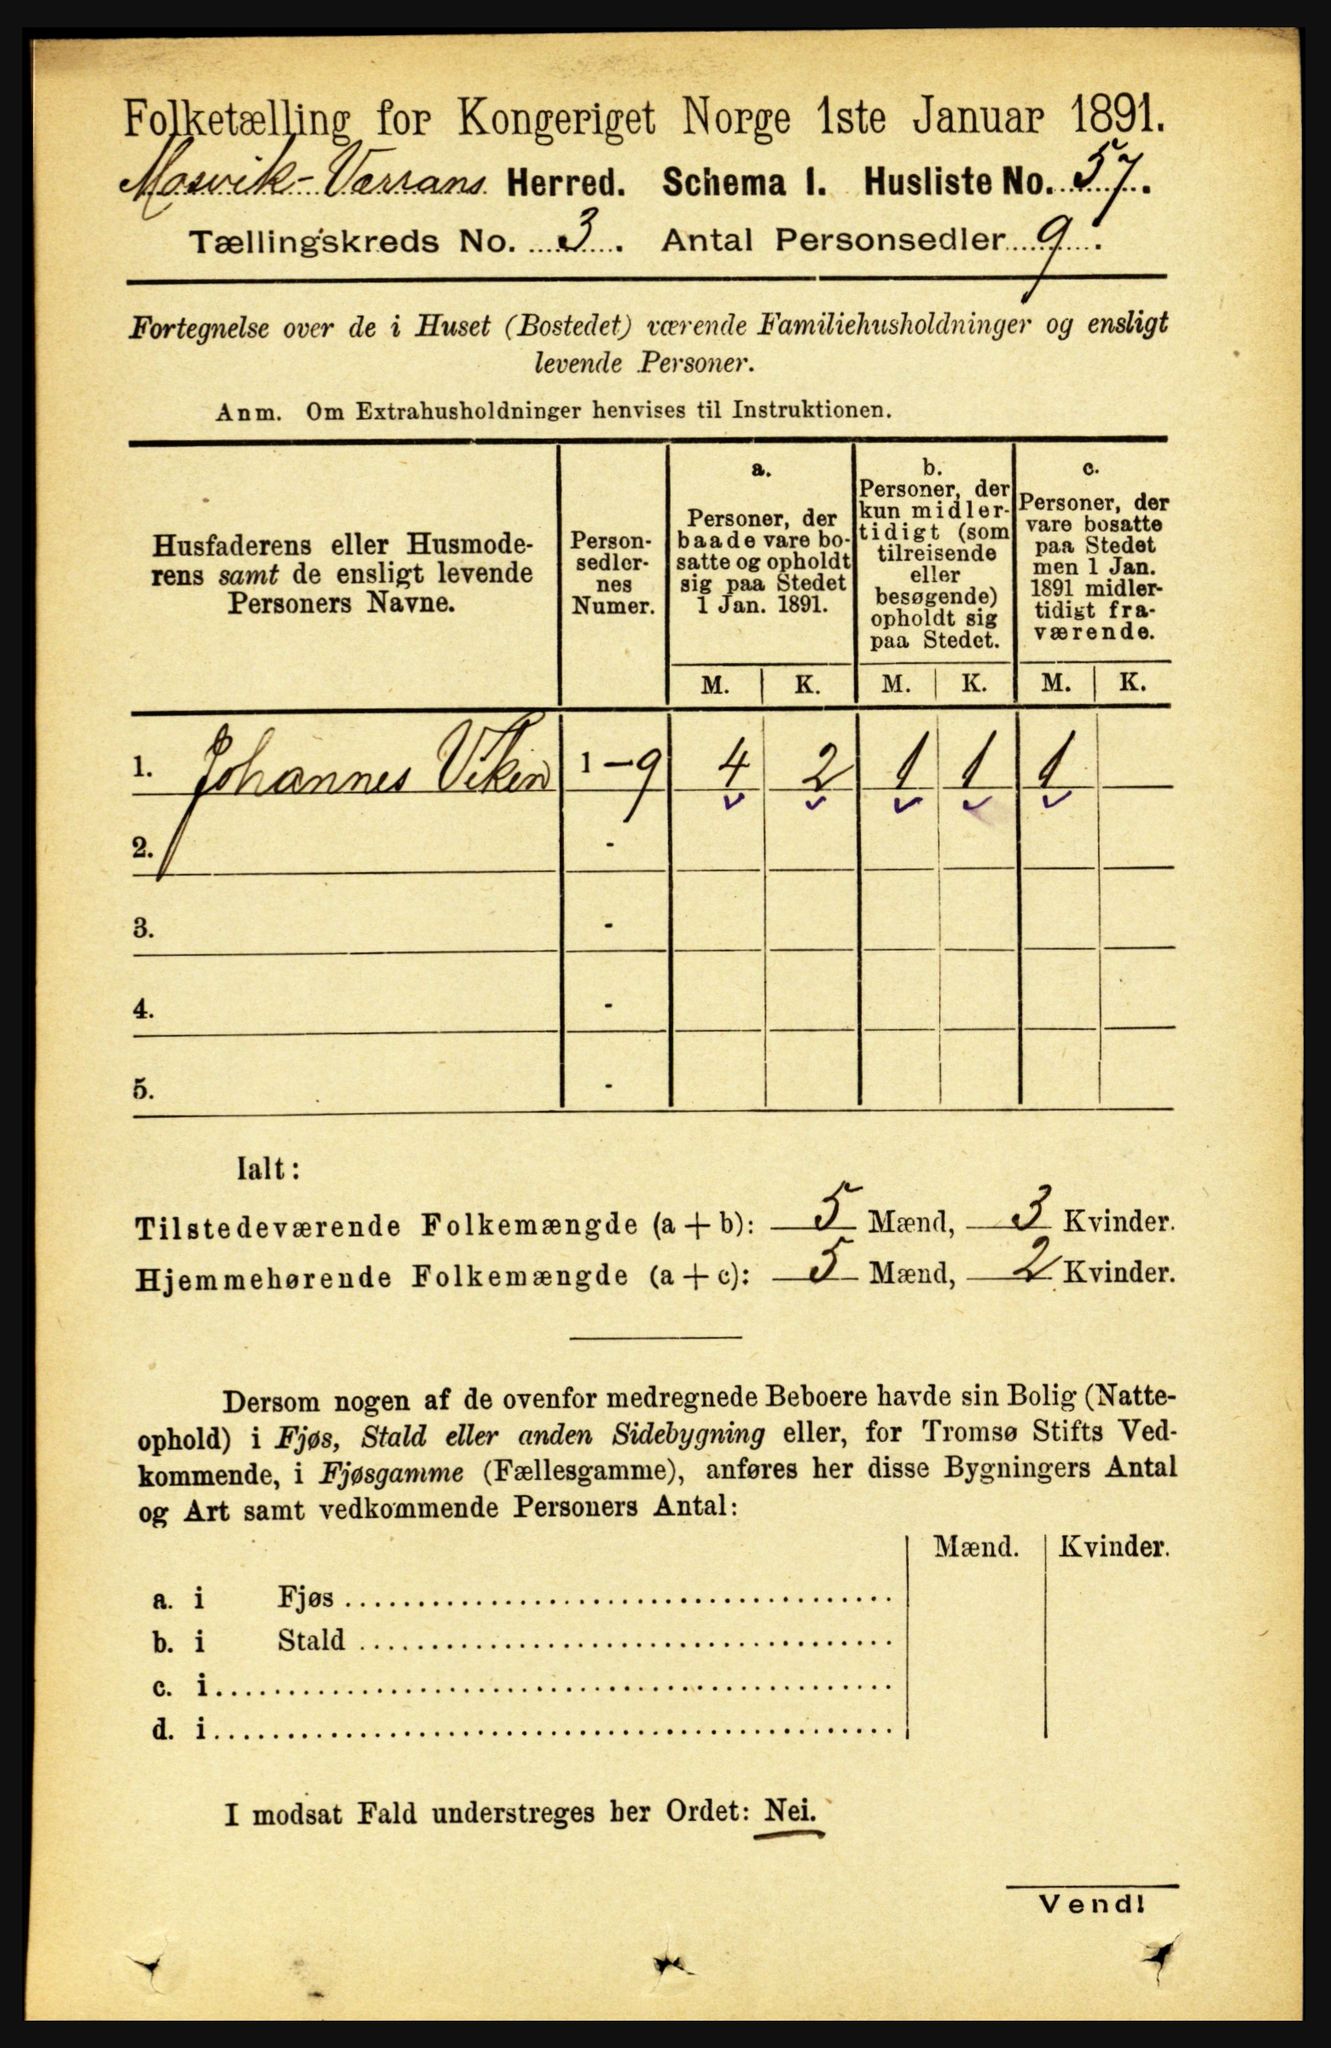 Folketælling for Kongeriget Norge 1ste Januar 1891.
Mosvik-Værrans Herred. Schema I. Husliste No. 57.
Tællingskreds No. 3. Antal Personsedler 9.
Fortegnelse over de i Huset (Bostedet) værende Familiehusholdninger og ensligt
levende Personer.
Anm. Om Extrahusholdninger henvises til Instruktionen.
Husfaderens eller Husmode-
rens samt de ensligt levende
Personers Navne.
Person-
sedler-
nes
Numer.
a.
Personer, der
baade vare bo-
satte og opholdt
sig paa Stedet
1 Jan. 1891.
b.
Personer, der
kun midler-
tidigt (som
tilreisende
eller
besøgende)
opholdt sig
paa Stedet.
c.
Personer, der
vare bosatte
paa Stedet
men 1 Jan.
1891 midler-
tidigt fra-
værende.
M. K. M. K. M. K.
1. Johannes Viken 1 - 9 4 2 1 1 1
2. -
3. -
4. -
5. -
Ialt:
Tilstedeværende Folkemængde (a + b): 5 Mænd, 3 Kvinder.
Hjemmehørende Folkemængde (a + c): 5 Mænd, 2 Kvinder.
Dersom nogen af de ovenfor medregnede Beboere havde sin Bolig (Natte-
ophold) i Fjøs, Stald eller anden Sidebygning eller, for Tromsø Stifts Ved-
kommende, i Fjøsgamme (Fællesgamme), anføres her disse Bygningers Antal
og Art samt vedkommende Personers Antal:
Mænd. Kvinder.
a. i Fjøs
b. i Stald
c. i
d. i
I modsat Fald understreges her Ordet: Nei.
Vend!